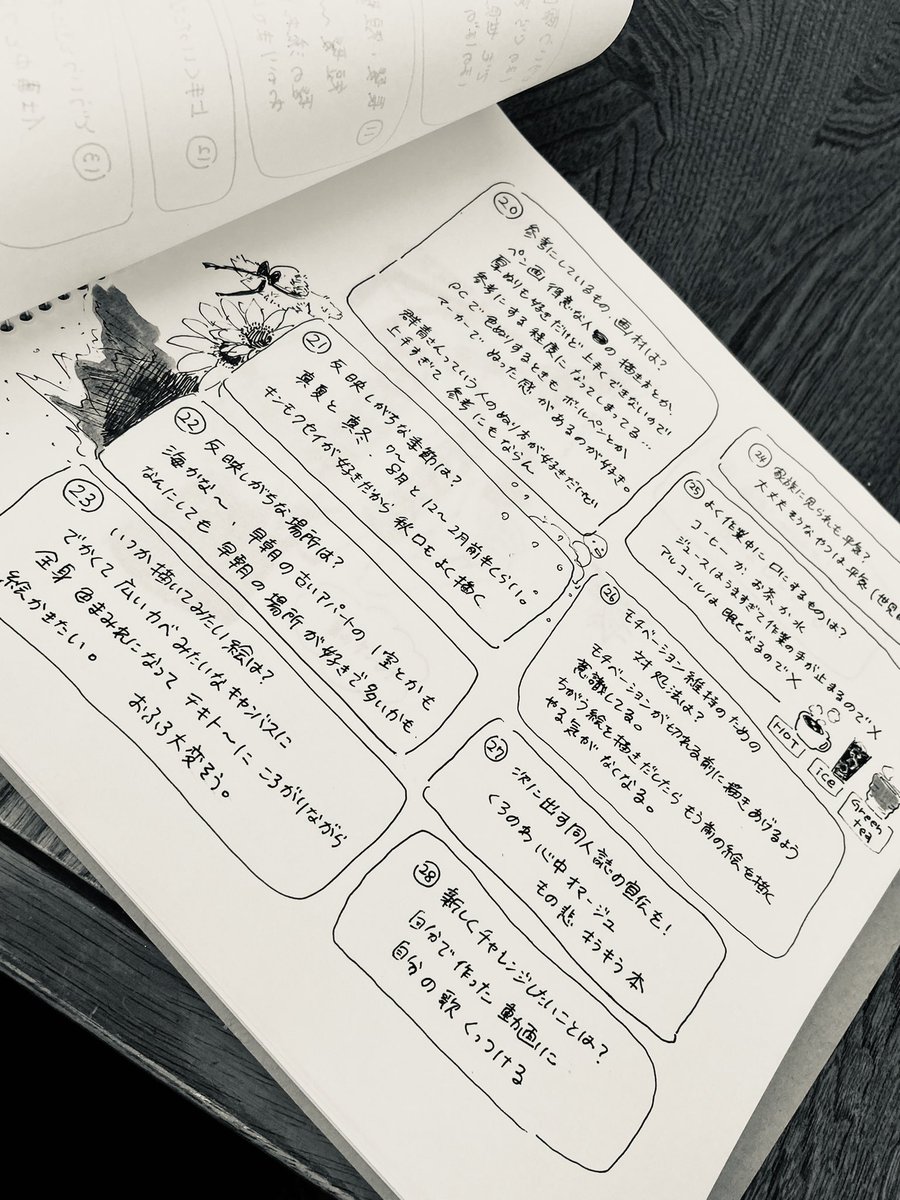 ⑳ 参考にしているもの、画材は?
ペン画得意な人の描き方とか、
厚ぬりも好きだけど上手くできないので
参考にする程度になってしまってる…
PCで色ぬりするときも、ボールペンとか
マーカーで ぬった感があるのが好き。
群青さんっていう人のぬり方が好きだけど
上手すぎて参考にもならん
㉑ 反映しがちな季節は?
真夏と真冬、7〜8月と12〜2月前半くらい。
キンモクセイが好きだから秋口もよく描く
㉒ 反映しがちな場所は?
海かな〜、早朝の古いアパートの1室とかも
なんにしても 早朝の場所が好きで多いかも。
㉓ いつか描いてみたい絵は?
でかくて広いカベみたいなキャンバスに
全身まみれになって テキト〜に ころがりながら
絵かきたい。
おふろ大変そう。
㉔ 家族に見られも平気?
大丈夫そうなやつは平気
㉕ よく作業中に口にするものは?
コーヒーか、お茶か水
ジュースはうますぎて作業の手が止まるので×
アルコールは眠くなるので×
HOT
ice
Green
tea
㉖ モチベーション維持のための
対処法は?
モチベーションが切れる前に描きあげるよう
意識してる。
ちがう絵を描きだしたらもう前の絵を描く
やる気がなくなる。
㉗ 次に出す同人誌の宣伝を!
くろのわ 心中オマージュ
もの悲 キラキラ本
㉘ 新しくチャレンジしたいことは?
自分で作った動画に
自分の歌くっつける
⑪
⑫
⑬